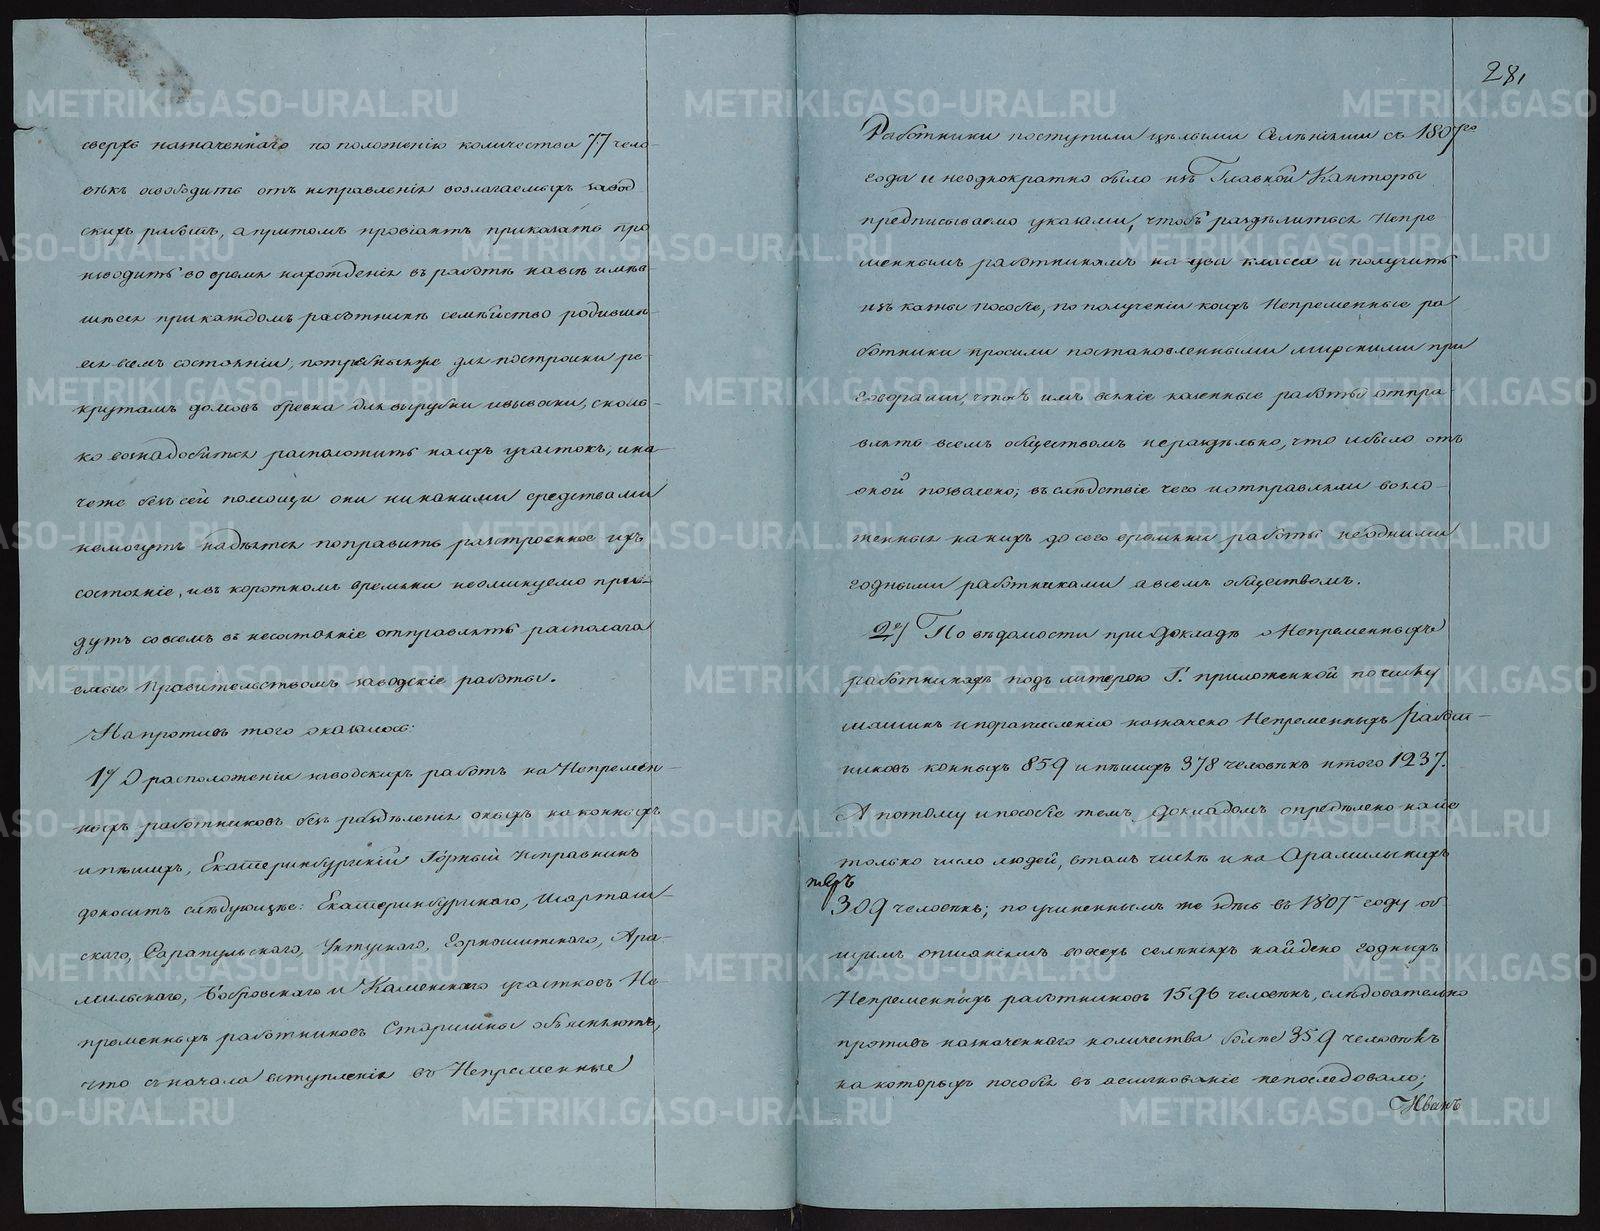 сверхъ назначеннаго по положенію количества 77 чело-
вѣкъ освободить отъ исправленія возлагаемыхъ завод
скихъ работъ, а притомъ провіантъ приказать про
изводить во время нахожденія въ работѣ на всѣ имѣю
щіеся при каждомъ работникѣ семѣйство родивши-
еся въ семъ состояніи, потребныя же для постройки ре-
крутамъ домовъ бревна для вырубки и вывоски, сколь-
ко взнадобится расположить на ихъ участокъ, ина-
че же безъ сей помощи они никакими средствами
не могутъ надѣятся поправить разстроенное ихъ
состояніе, и въ короткомъ времяни неоминуемо прiи-
дутъ совсемъ въ несостояніе отправлять располага
емые Правительствомъ заводскіе работы.
Напротивъ того оказалось:
1е/ О расположеніи заводскихъ работъ на Непремен-
ныхъ работниковъ безъ раздѣленія оныхъ на конныхъ
и пѣшихъ, Екатеринбургскій Горный Исправникъ
доноситъ слѣдующее: Екатеринбургскаго, Шарташ-
скаго, Сарапульскаго, Уктускаго, Горнощитскаго, Ара-
мильскаго, Бобровскаго и Каменскаго участковъ Не-
пременныхъ работниковъ Старшины объясняютъ,
что съ начала вступленія въ Непременные
28,
Работники поступили цѣлыми Селѣніями съ 1807го
года и неоднократно было изъ Главной Канторы
предписываемо указами, чтобъ раздѣлиться Непре
меннымъ работникамъ на два класса и получить
изъ казны пособіе, по полученіи коихъ Непременные ра
ботники просили постановленными мирскими при
говорами, чтобъ имъ всякіе казенные работы отпра
влять всемъ обществомъ нераздѣльно, что и было отъ
оной позволено; въ слѣдствіе чего и отправляли возло-
женныя на нихъ до сего времяни работы не одними
годными работниками а всемъ обществомъ.
2е/ По вѣдомости при докладѣ о Непременныхъ
работникахъ подъ литерою Г. приложенной по числу
машинъ и по разчисленію назначено Непременныхъ работ-
никовъ конныхъ 859 и пѣшихъ 378 человѣкъ итого 1237.
А потому и пособіе темъ докладомъ опредѣлено на
только число людей, в томъ числѣ и на Арамильскихъ
309 человѣкъ; по учиненнымъ же здѣсь въ 1807 году об
щимъ описаніемъ во всехъ селѣніяхъ найдено годныхъ
Непременныхъ работниковъ 1596 человѣкъ, слѣдовательно
противъ назначеннаго количества болѣе 359 человѣкъ
на которыхъ пособія въ асигнованіе непоследовало;
Иванъ
METRIKI.GASO-URAL.RU